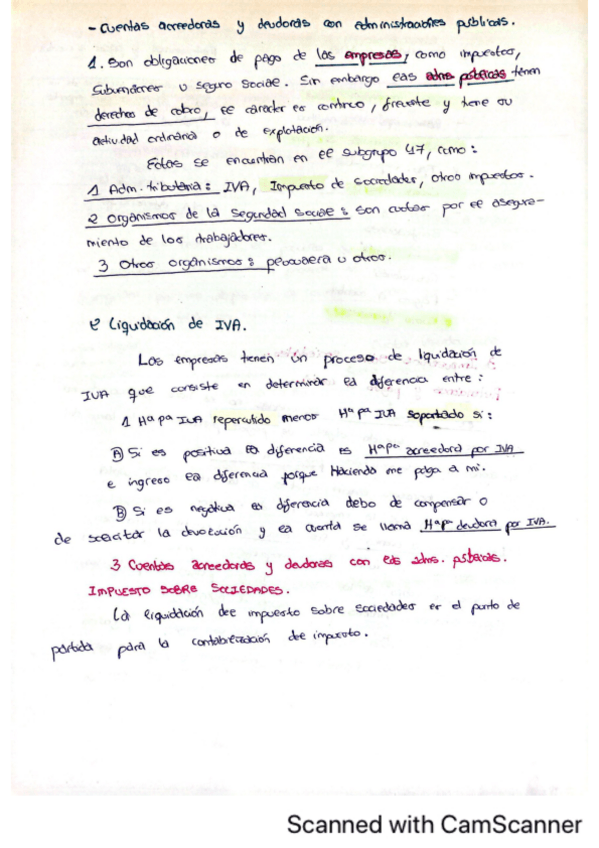 - Cuentas acreedoras y deudoras con administraciones públicas.
1. Son obligaciones de pago de las empresas, como impuestos,
Subvenciones u seguro Social. Sin embargo las adms públicas tienen
derechos de cobro, el carácter es continuo, frecuente y tiene su
actividad ordinaria o de explotación.
Estas se encuentran en el subgrupo 47, como:
1 Adm. tributaria: IVA, Impuesto de sociedades, otros impuestos.
2 Organismos de la Seguridad Social: son cuotas por el asegura-
miento de los trabajadores.
3 Otros organismos: u otros.
Liquidación de IVA.
Las empresas tienen un proceso de liquidación de
IVA que consiste en determinar la diferencia entre:
1 Hª pª IVA repercutido menos Hª pª IVA soportado si:
A) Si es positiva la diferencia es Hª pª acreedora por IVA
e ingreso la diferencia porque Hacienda me paga a mi.
B) Si es negativa la diferencia debo de compensar o
de solicitar la devolución y la cuenta se llama Hª pª deudora por IVA.
3 Cuentas acreedoras y deudoras con las adms. públicas.
IMPUESTO SOBRE SOCIEDADES.
La liquidación del impuesto sobre sociedades es el punto de
partida para la contabilización del impuesto.
Scanned with CamScanner